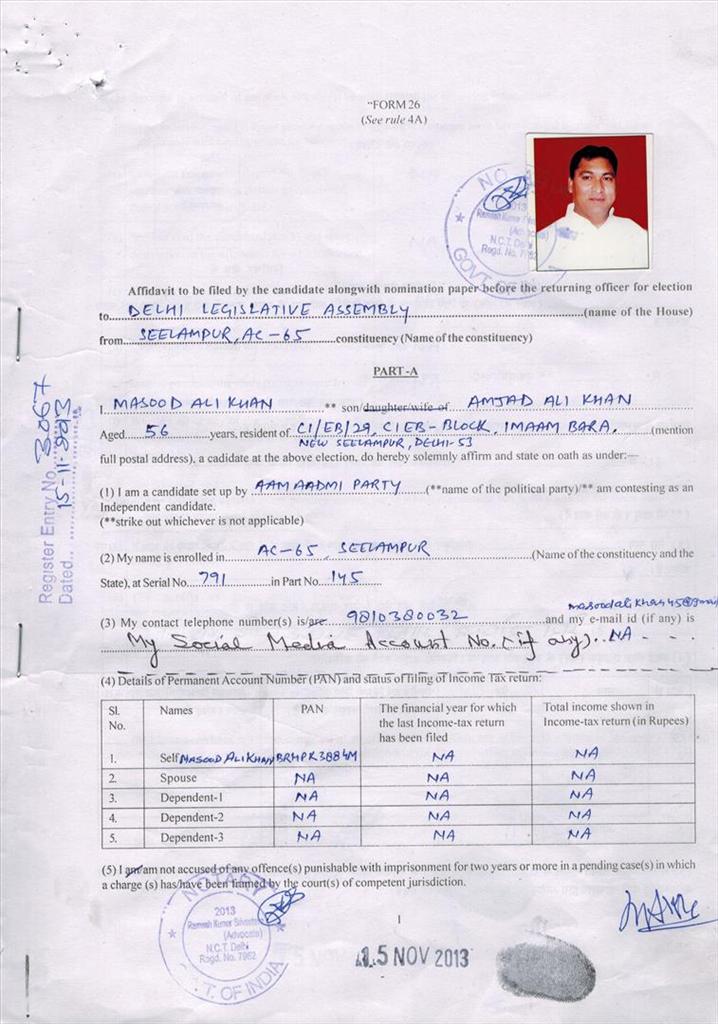 "FORM 26
(See rule 4A)
NOTARY
2013
Ramesh Kumar
(Advocate)
N.C.T. Delhi
Regd. No. 7962
GOVT.
Affidavit to be filed by the candidate alongwith nomination paper before the returning officer for election
to DELHI LEGISLATIVE ASSEMBLY (name of the House)
from SEELAMPUR, AC-65 constituency (Name of the constituency)
PART-A
I MASOOD ALI KHAN ** son/daughter/wife of AMJAD ALI KHAN
Aged 56 years, resident of C1/EB/29, C1 EB-BLOCK, IMAAM BARA. (mention
NEW SEELAMPUR, DELHI-53
full postal address), a cadidate at the above election, do hereby solemnly affirm and state on oath as under:—
Register Entry No. 3067
Dated... 15-11-2013
(1) I am a candidate set up by AAM AADMI PARTY (**name of the political party)/** am contesting as an
Independent candidate.
(**strike out whichever is not applicable)
(2) My name is enrolled in AC-65 SEELAMPUR (Name of the constituency and the
State), at Serial No. 791 in Part No. 145
masoodalikhan45@gmail
(3) My contact telephone number(s) is/are 9810380032 and my e-mail id (if any) is
My Social Media Account No. (if any).. NA
(4) Details of Permanent Account Number (PAN) and status of filing of Income Tax return:
Sl. No. Names PAN The financial year for which the last Income-tax return has been filed Total income shown in Income-tax return (in Rupees)
1. Self MASOOD ALI KHAN BRHPK3884M NA NA
2. Spouse NA NA NA
3. Dependent-1 NA NA NA
4. Dependent-2 NA NA NA
5. Dependent-3 NA NA NA
(5) I am/am not accused of any offence(s) punishable with imprisonment for two years or more in a pending case(s) in which
a charge (s) has/have been framed by the court(s) of competent jurisdiction.
NOTARY
2013
Ramesh Kumar
(Advocate)
N.C.T. Delhi
Regd. No. 7962
GOVT. OF INDIA
1
15 NOV 2013